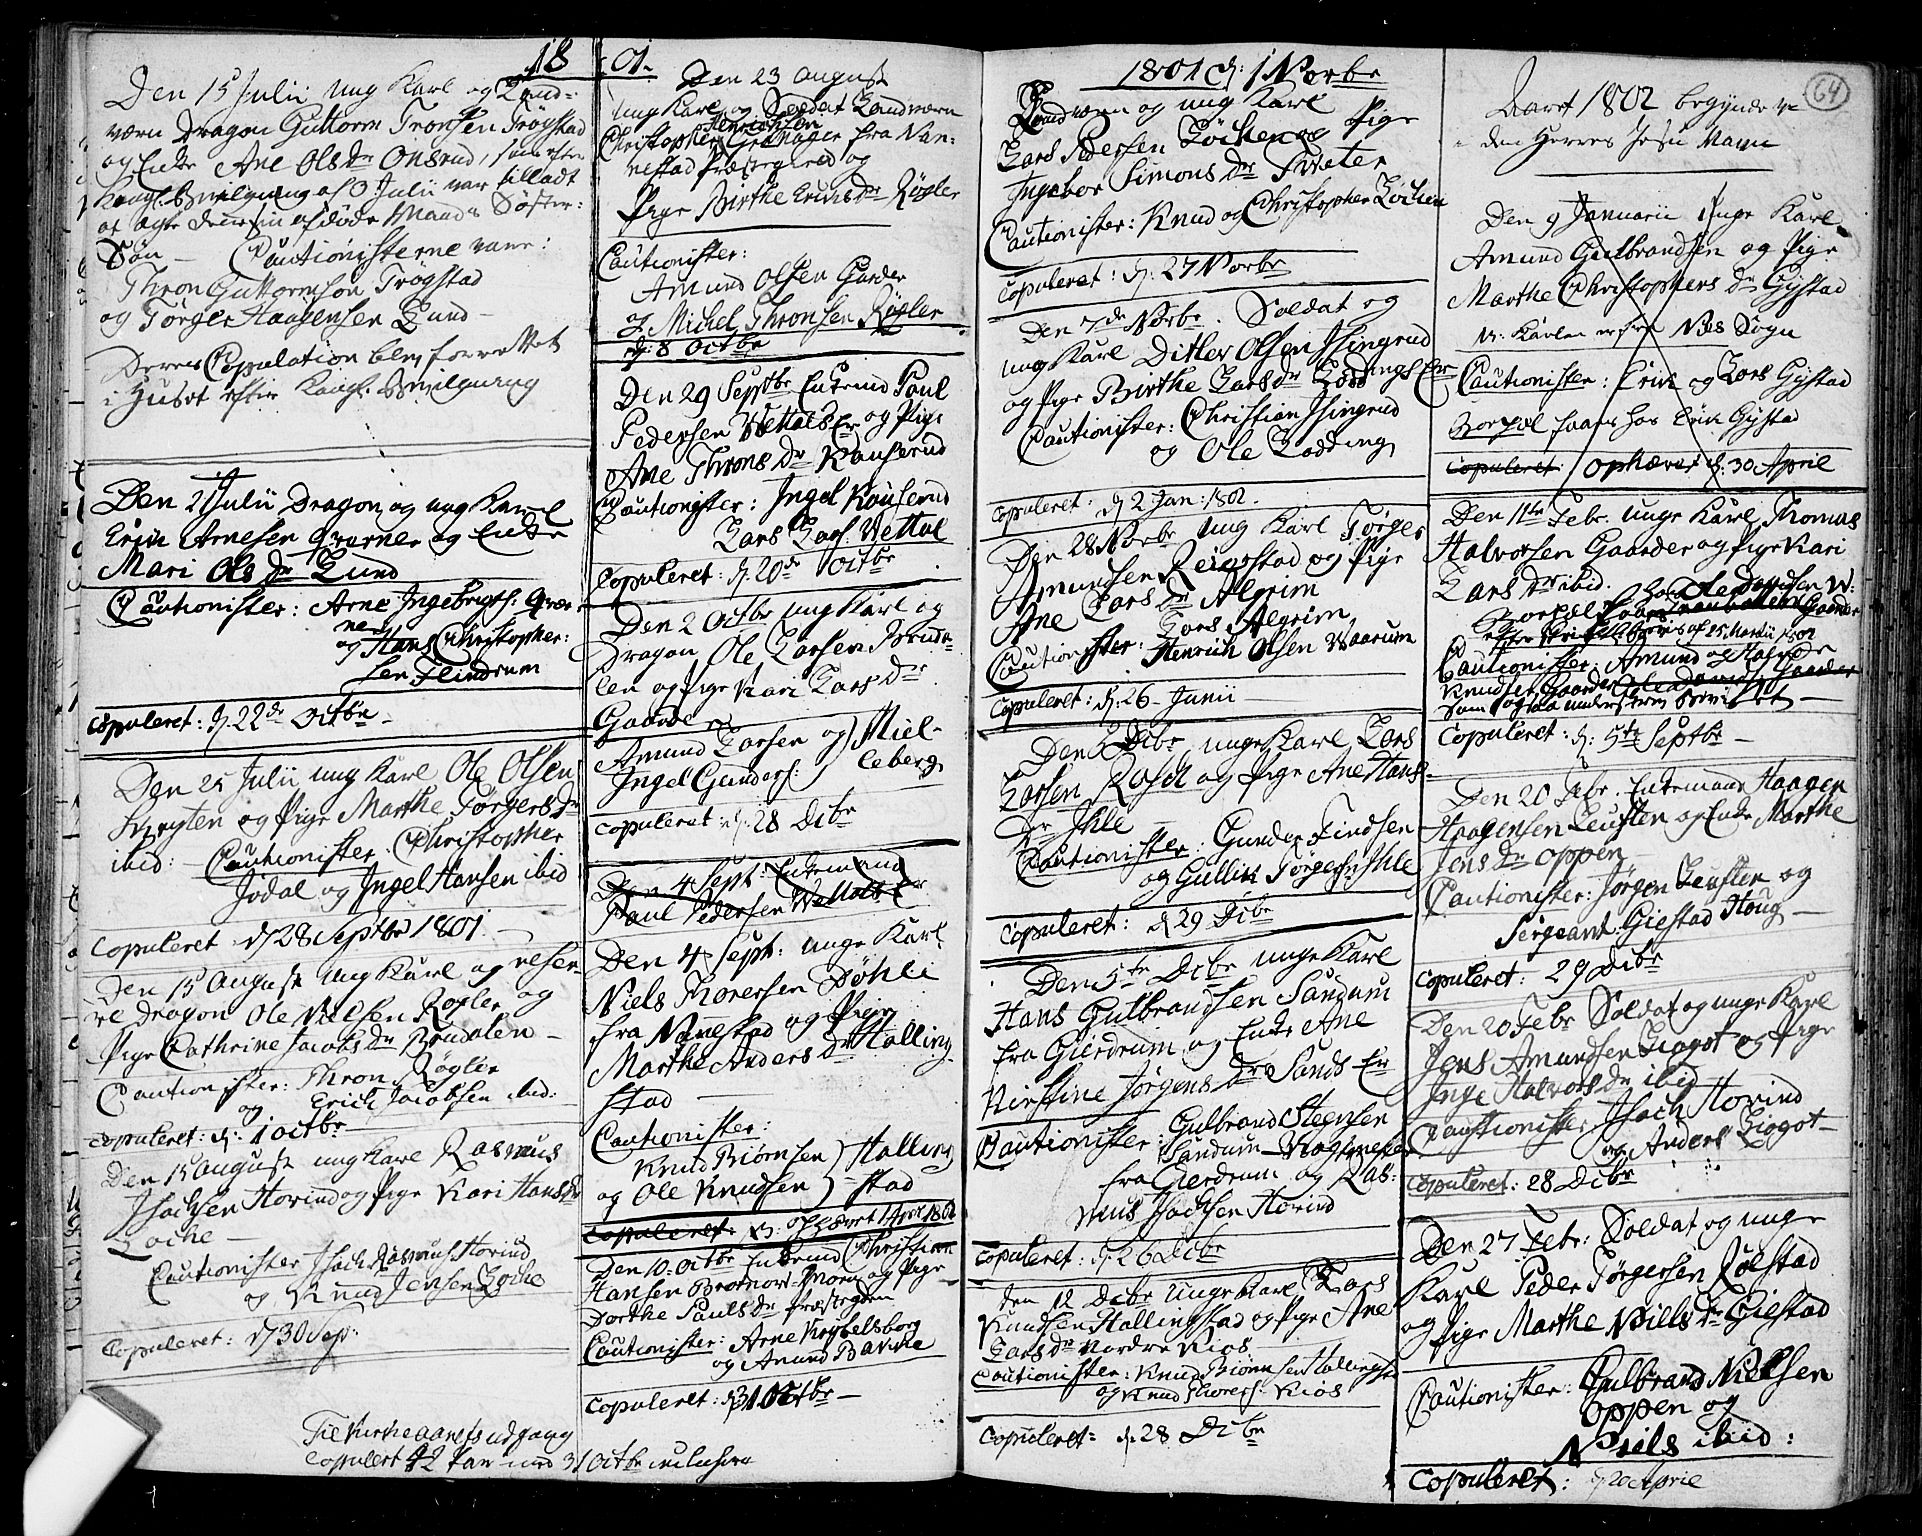 1801.
Den 15 Julii ung Karl og Land=
værn Dragon Guttorm Tronsen Trøgstad
og Enke Ane Ols Dr Onsrud, som efter
Kongl. Bevilgning af 3 Julii var tilladt
at ægte dennem afdøde Mands Søster=
Søn — Cautionisterne vare:
Thron Guttormsøn Trøgstad
og Tørger Haagensen Lund —
Deres Copulation blev forrettet
i Huset efter Kongl. Bevilgning
Den 21 Julii Dragon og ung Karl
Erich Arnesen Qværner og Enke
Mari Ols Dr Lund
Cautionister: Arne Ingebrigts: Qvær=
ner
og Hans Christopher:
sen Flindrum
Copuleret: d. 22de Octbr —
Den 25 Julii ung Karl Ole Olsen
og Pige Marthe Tørgers Dr
ibid: — Cautionister: Christopher
Jødal og Ingel Hansen ibid
Copuleret d. 28 Septbr 1801. —
Den 15 August ung Karl og reser=
ve Dragon Ole Nielsen Røgler og
Pige Cathrine Jacobs Dr Brudalen —
Cautionister: Thron Røgler
og Erich Jacobsen ibid:
Copuleret: d. 1 Octbr
Den 15 August ung Karl Rasmus
Isachsen Horind og Pige Kari Hans Dr
Løche —
Cautionister Isach Rasmus: Horind
og Knud Jensen Løche
Copuleret: d. 30 Sep:
Til Kirkeaarets udgang
Copulert 12 Par
Den 23 August
ung Karl og Soldat Landværn
Henrichsen
Christopher fra Nan=
nestad Præstegield og
Pige Birthe Erichs Dr Røgler
Cautionister:
Amund Olsen Garder
og Michel Thronsen Røgler
d. 8 Octbr
Den 29 Septbr Enkemd Poul
Pedersen Wettals Er og Pige
Ane Throns Dr Kauserud
Cautionister: Ingel Kauserud
Lars Lars: Wettal
Copuleret: d. 20de Octbr
Den 2 Octbr ung Karl og
Dragon Ole Larsen Bruda=
len og Pige Kari Lars Dr
Gaarder
Amund Larsen og } Miel=
Ingel Gunders: } leberg
Copuleret: d. 28 Dcbr
Den 4 Sept: Enkemand
Paul Pedersen Wettals Er
Den 4 Sept: unge Karl
Niels Thoresen Døhli
fra Nannestad og Pige
Marthe Anders Dr Halling=
stad —
Cautionister:
Knud Biørnsen } Halling
og Ole Knudsen } stad
Copuleret: d. ophævet 1 April 1802
Den 10. Octbr Enkemd Christian
Hansen og Pige
Dorthe Pauls Dr Præstegden
Cautionister: Arne Krybelsborg
og Amund Bakke
Copuleret: d. 31 Octbr —
1801 d: 1 Novbr
Landværn og ung Karl
Lars Pedersen Løchen og Pige
Ingebor Simons Dr Sæter
Cautionister: Knud og Christopher Løchen
Copuleret: d. 27 Novbr
Den 7de Novbr. Soldat og
ung Karl Ditlev Olsen Isingrud
og Pige Birthe Lars Dr Loddings Er
Cautionister: Christian Isingrud
og Ole Lodding
Copuleret: d. 2 Jan: 1802.
Den 28 Novbr ung Karl Tørger
Amundsen Reigstad og Pige
Ane Lars Dr Algrim
Cautionister: Lars Algrim
Henrich Olsen Waarum
Copuleret: d. 26 Junii
Den 3 Dcbr, unge Karl Lars
Larsen Rosel og Pige Ane Hans
Dr Ihle —
Cautionister: Gunder Findsen
og Gullik Tørgers: Ihle
Copuleret: d 29 Dcbr
Den 5te Dcbr unge Karl
Hans Gulbrandsen Sandum
fra Gierdrum og Enke Ane
Kirstine Jørgens Dr Sands Er
Cautionister: Gulbrand Steensen
Sandum
fra Gierdrum og Ras:
mus Isachsen Horind
Copuleret: d. 26 Dcbr
Den 12 Dcbr unge Karl Lars
Knudsen Hallingstad og Pige Ane
Lars Dr Nordre Kios
Cautionister: Knud Biørnsen Hallingstad
og Knud Thoress: Kios
Copuleret: d. 28 Dcbr
64
Aaret 1802 begyndes
i den Herres Jesu Navn
Den 9 Januarii Unge Karl
Amund Gulbrandsen og Pige
Marthe Christophers Dr Gystad
N. Karlen er fra Næs Sogn
Cautionister: Erik og Lars Gystad
hos Erik Gystad
Copuleret Ophævet d. 30 April
Den 11te Febr. unge Karl Thomas
Halvorsen Gaarder og Pige Kari
Lars Dr ibid.
af 25 Martii 1802
Cautionister: Amund og
Knudsen Gaarder
Copuleret: d. 5te Septbr —
Den 20 Febr. Enkemand Haagen
Haagensen Leusten og Enke Marthe
Jens Dr Oppen —
Cautionister: Jørgen Leusten og
Sergeant Giestad Houg —
Copuleret: 29 Dcbr
Den 20 Febr Soldat og unge Karl
Jens Amundsen Liogot og Pige
Inge Halvors Dr ibid
Cautionister: Isach Horind
og Anders Liogot —
Copuleret: 28 Dcbr
Den 27 Febr: Soldat og unge
Karl Peder Tørgersen Rølstad
og Pige Marthe Niels Dr Giestad
Cautionister: Gulbrand Nielsen
Oppen og
Niels ibid:
Copuleret: d. 20 April